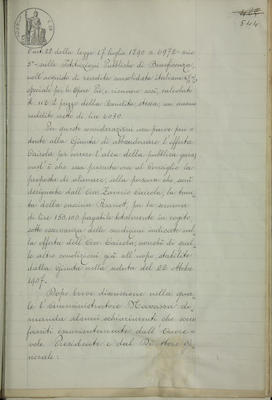 l'art. 28 della legge 17 luglio 1890 n. 6972
sulle Istituzioni Pubbliche di Beneficenza,
nell'acquisto di rendita consolidata italiana
speciale per le Opere Pie, e ricavare così, calcolato
il prezzo della Rendita stessa, un annuo
reddito netto di lire 6030.
In queste considerazioni non parve più
alla Giunta di abbandonare l'offerta
Cairola per correre l'alea della pubblica gara
ond'è che essa presenta ora al Consiglio la
proposta di alienare, alla persona che sarà
designata dall'Cav. Cairola, la
della cascina per la somma
di lire 150.100 pagabile totalmente in rogito,
sotto osservanza delle condizioni indicate nel
la offerta dell'Cav. Cairola, nonché di quel
le altre condizioni già all'uopo stabilite
dalla Giunta nella seduta del 26 Ottobre
1907.
Dopo breve discussione nella qua
le l'Amministratore do
manda alcuni schiarimenti che sono
forniti esaurientemente dall'Onore
vole Presidente e dal Direttore Ge
nerale: